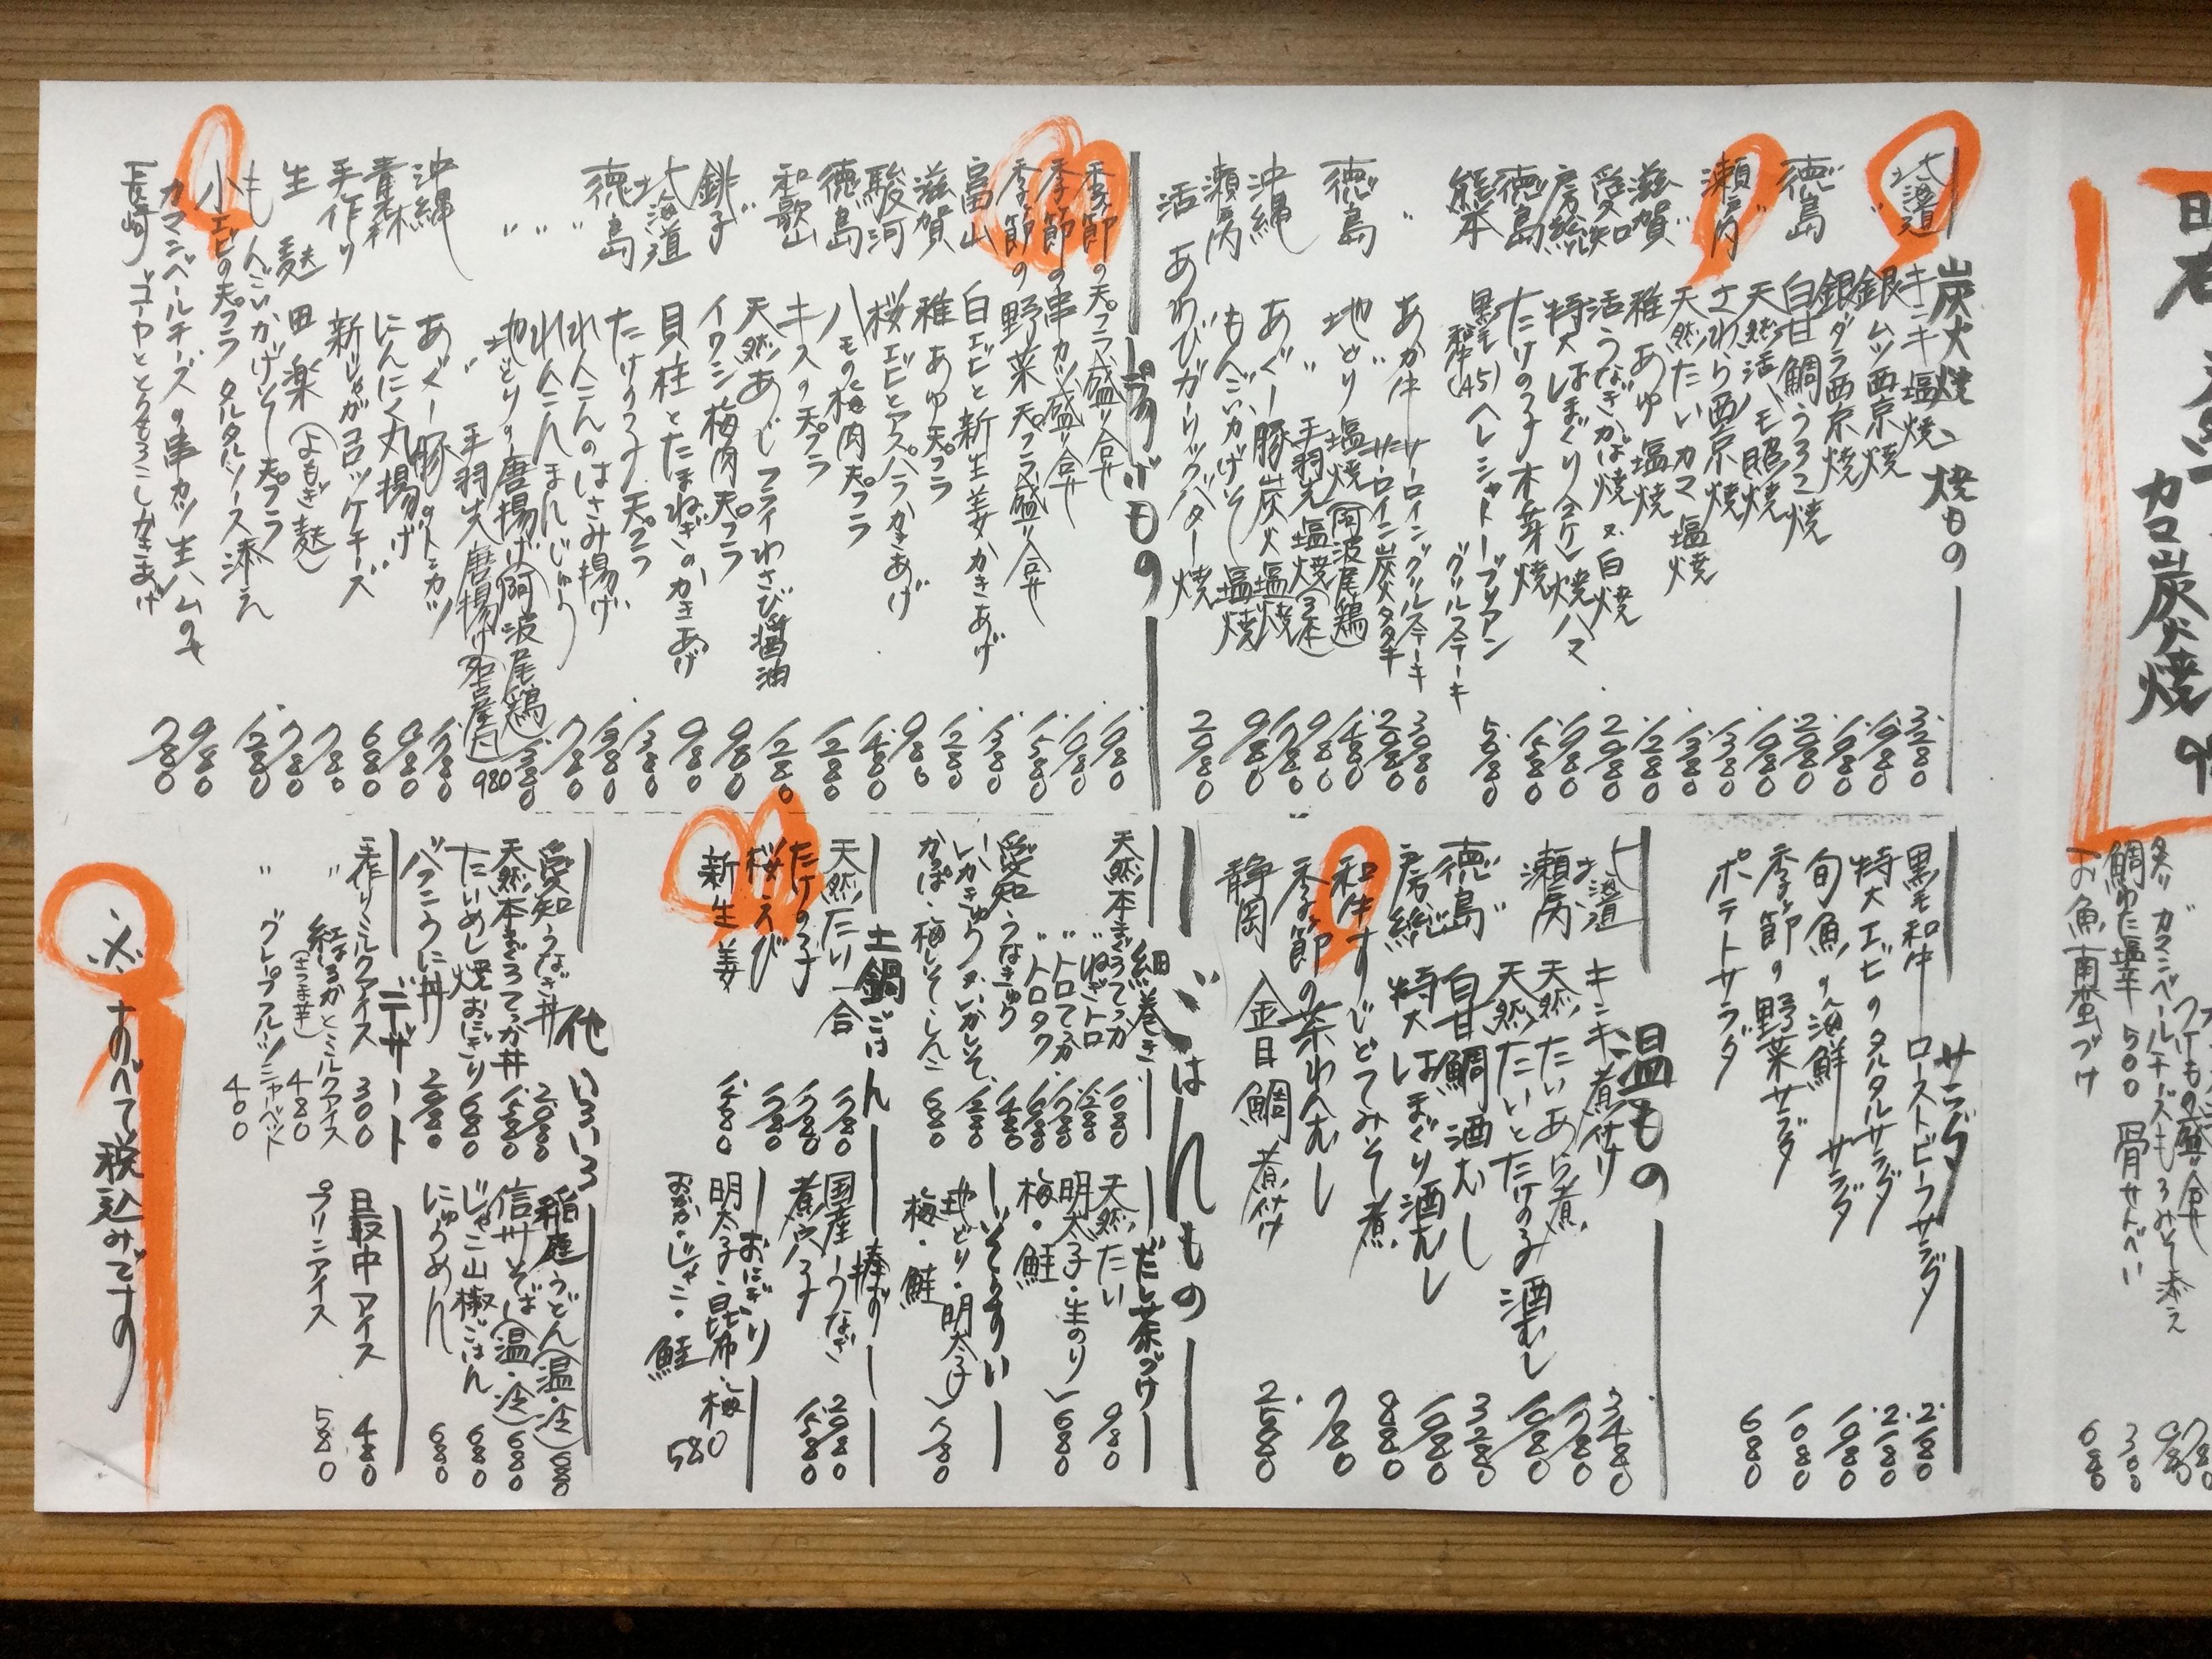 炭火焼、焼もの
北海道 キンキ塩焼 3.280
〃 銀ムツ西京焼 1.980
銀ダラ西京焼 1.980
徳島 白甘鯛うろこ焼 2.980
〃 天然活ハモ照焼 1.980
瀬戸内 さわら西京焼 1.380
〃 天然たいカマ塩焼 1.380
滋賀 稚あゆ塩焼 1.280
愛知 活うなぎかば焼 又 白焼 2.980
房総 特大はまぐり 1.980
徳島 たけの子木の芽焼 1.580
熊本 黒毛和牛(A5) ヘレシャトーブリアングリルステーキ 5.980
〃 あか牛 サーロイングリルステーキ 3.080
〃 〃 サーロイン炭火タタキ 2.980
徳島 地どり塩焼(阿波尾鶏) 1.480
〃 手羽先塩焼(3本) 980
沖縄 あぐー豚炭火塩焼 1.780
瀬戸内 もんごいかげそ塩焼 980
活あわびガーリックバター焼 2.980
揚げもの
季節の天プラ盛り合せ 1.980
季節の串カツ盛り合せ 1.980
季節の野菜天プラ盛り合せ 1.580
富山 白エビと新生姜かきあげ 1.380
滋賀 稚あゆ天プラ 1.280
駿河 桜エビとアスパラかきあげ 980
徳島 ハモの梅肉天プラ 1.480
和歌山 キスの天プラ 1.280
〃 天然あじフライわさび醤油 1.280
銚子 イワシ梅肉天プラ 980
北海道 貝柱とたまねぎのかきあげ 980
徳島 たけの子天プラ 1.380
〃 れんこんのはさみ揚げ 1.380
〃 れんこんまんじゅう 780
〃 地どりの唐揚げ(阿波尾鶏) 1.380
〃 手羽先唐揚げ(名古屋风) 980
沖縄 あぐー豚のトンカツ 1.780
青森 にんにく丸揚げ 980
手作り 新じゃがコロッケチーズ 680
生麩田楽(よもぎ麩) 780
もんごいかげそ天プラ 780
小エビの天プラタルタルソース添え 1.280
カマンベールチーズの串カツ生ハムのせ 980
長崎 ゴーヤととうもろこしかきあげ 780
サラダ
黒毛和牛ローストビーフサラダ 2.180
特大エビのタルタルサラダ 2.180
旬魚の海鮮サラダ 1.980
季節の野菜サラダ 1080
ポテトサラダ 680
温もの
北海道 キンキ煮付け 3.480
瀬戸内 天然たいあら煮 1.780
〃 天然たいとたけの子酒むし 1.980
徳島 白甘鯛酒むし 3.280
房総 特大はまぐり酒むし 1.980
和牛すじどてみそ煮 880
季節の茶わんむし 780
静岡 金目鯛煮付け 2.680
ごはんもの
細巻き
天然本まぐろてっか 1.080
〃 ねぎトロ 1.280
〃 トロてっか 1.780
〃 トロタク 1.680
愛知うなきゅう 1.480
いかきゅう又、いかしそ 1.280
かっぱ・梅しそ・しんこ 680
だし茶づけ
天然たい 980
明太子・生のり
梅・鮭 680
ぞうすい
地どり・明太子
梅・鮭 780
土鍋ごはん
天然たい一合 1.780
たけの子 1.780
桜えび 1.780
新生姜 1.480
棒ずし
国産うなぎ 2.980
煮穴子 1.580
おにぎり
明太子・昆布・梅
おかか・じゃこ・鮭 580
他いろいろ
愛知うなぎ丼 2.980
天然本まぐろてっか丼 1.580
たいめし焼おにぎり 680
バフンうに丼 2.980
稲庭うどん(温・冷) 680
信州そば(温・冷) 680
じゃこ山椒ごはん 680
にゅうめん 680
デザート
手作りミルクアイス 300
〃 紅はるかとミルクアイス(さつま芋) 480
〃 グレープフルーツシャーベット 400
最中アイス 480
プリンアイス 580
※すべて税込みです
炭火焼
カマンベールチーズもろみそ添え
つけもの盛り合せ
鯛わた塩辛 500 骨せんべい 300
お魚南蛮づけ 680